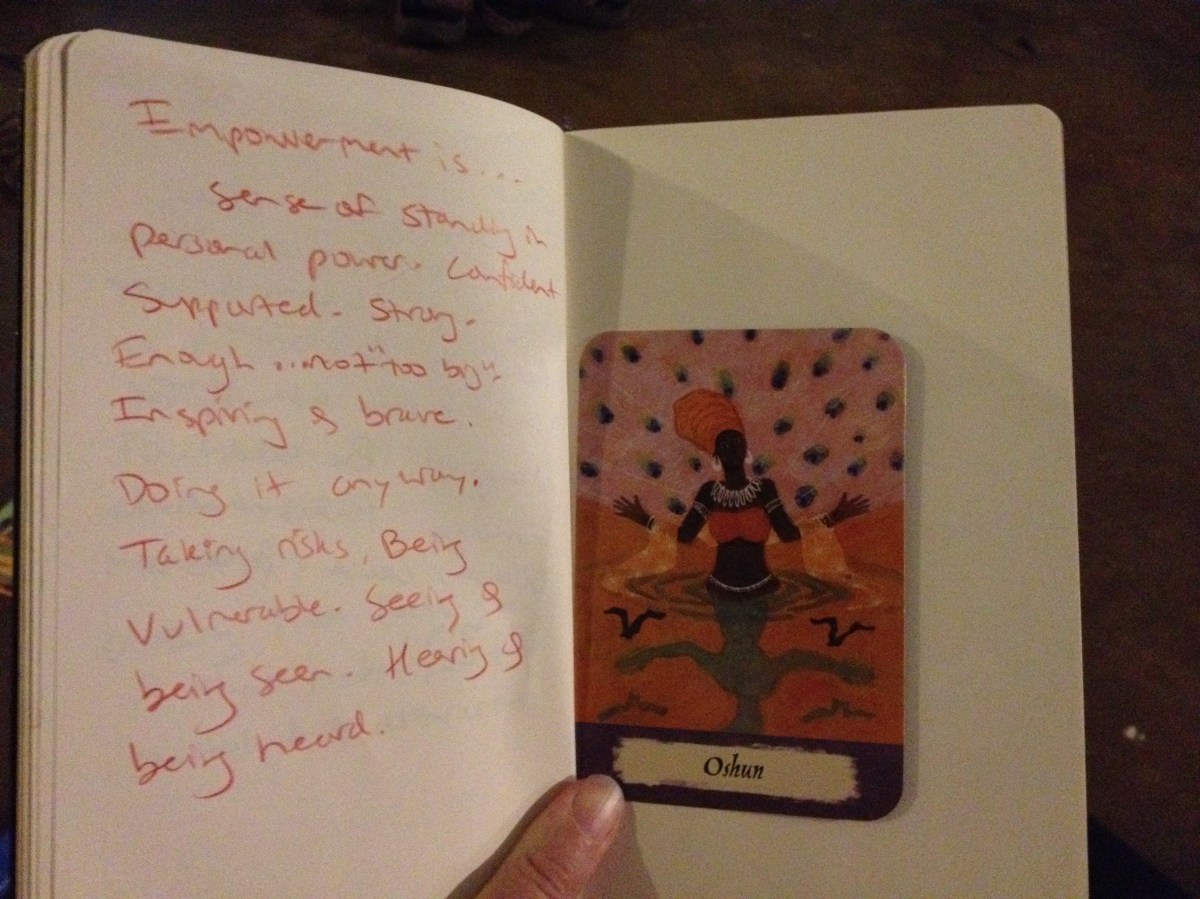 Empowerment is...
sense of standing in
personal power. Confident
Supported. Strong.
Enough...not "too big".
Inspiring & brave.
Doing it anyway.
Taking risks, Being
Vulnerable. Seeing &
being seen. Hearing &
being heard.
Oshun